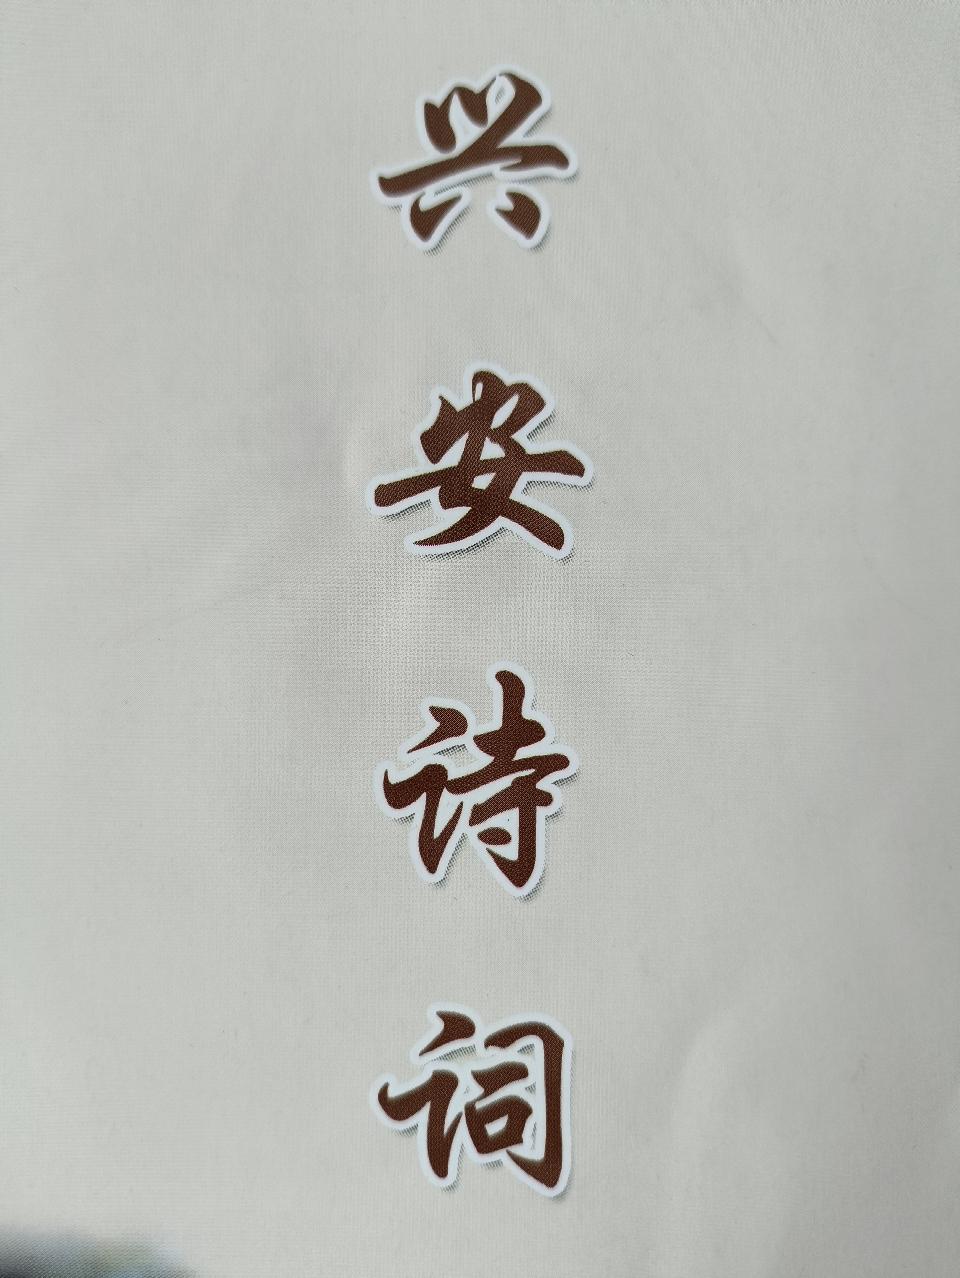 兴安诗词